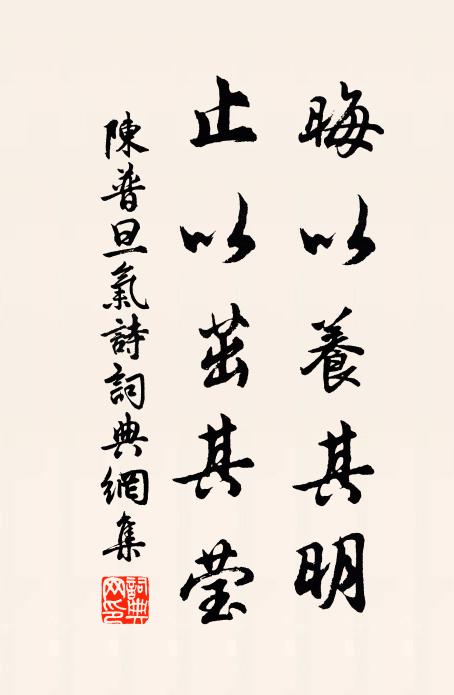 晦以養其明
止以茁其莹
陳普旦氣詩詞典網集
詞典網印